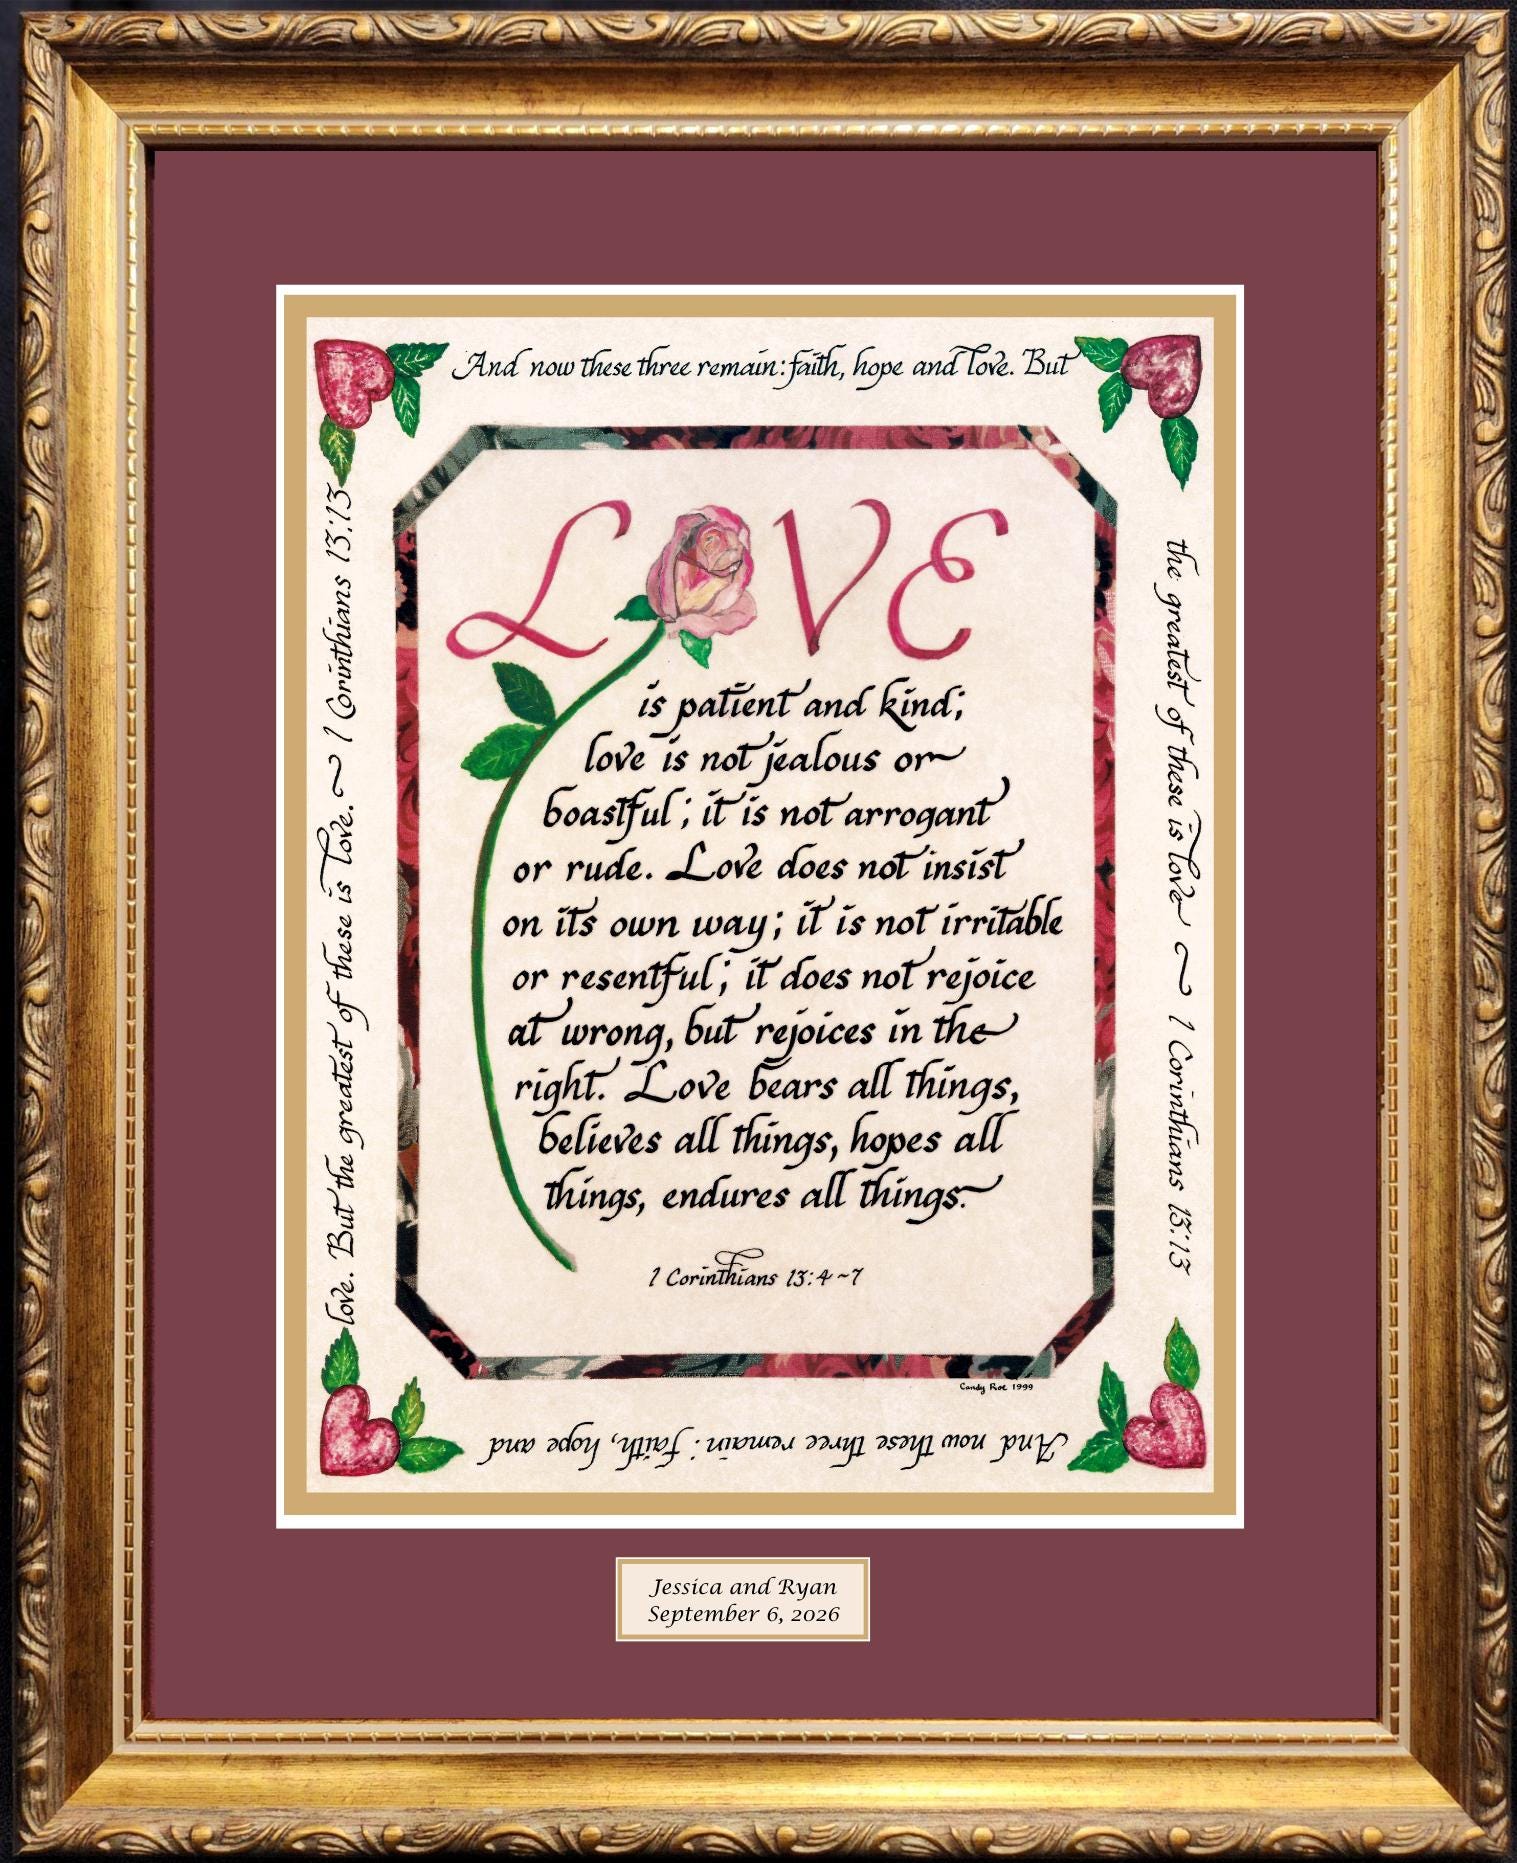 And now these three remain: faith, hope and love. But
the greatest of these is love ~ 1 Corinthians 13:13
And now these three remain: faith, hope and
love. But the greatest of these is love. ~ 1 Corinthians 13:13
LOVE
is patient and kind;
love is not jealous or
boastful; it is not arrogant
or rude. Love does not insist
on its own way; it is not irritable
or resentful; it does not rejoice
at wrong, but rejoices in the
right. Love bears all things,
believes all things, hopes all
things, endures all things.
1 Corinthians 13:4~7
Candy Roe 1999
Jessica and Ryan
September 6, 2026